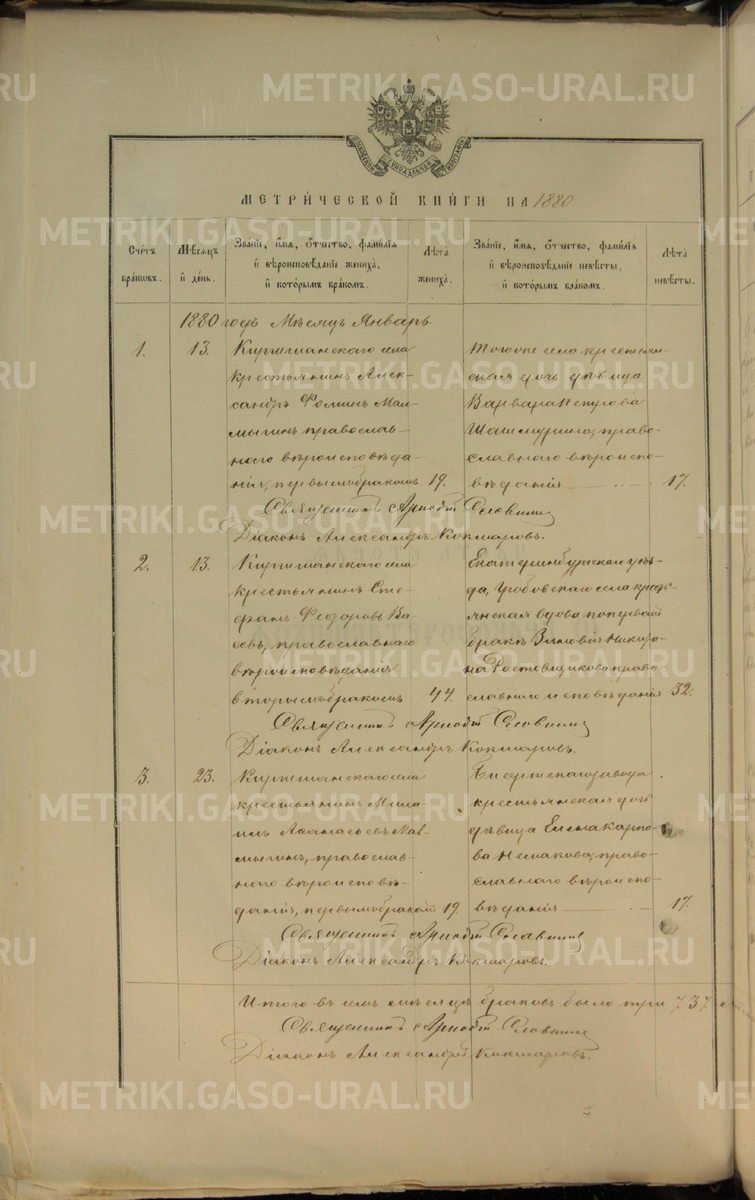 METRIKI.GASO-URAL.RU
МЕТРИЧЕСКОЙ КНИГИ НА 1880
Счетъ браковъ.
Мѣсяцъ и день.
Званіе, имя, отчество, фамилія и вѣроисповѣданіе жениха, и которымъ бракомъ.
Лѣта жениха.
Званіе, имя, отчество, фамилія и вѣроисповѣданіе невѣсты, и которымъ бракомъ.
Лѣта невѣсты.
1880 годъ Мѣсяцъ Январь.
1. 13. Киргишанскаго села
крестьянинъ Алек-
сандръ Фоминъ Мал-
мыгинъ, православ-
наго вѣроисповѣда-
нія, первымъ бракомъ 19.
Тогоже села крестьян-
ская дочь дѣвица
Варвара Петрова
право-
славнаго вѣроиспо-
вѣданія 17.
Священникъ
Діаконъ Александръ Кокшаровъ.
2. 13. Киргишанскаго села
крестьянинъ Сте-
фанъ Федоровъ Ва-
севъ, православнаго
вѣроисповѣданія
вторымъ бракомъ 44.
Екатеринбургскаго уѣз-
да, Гробовскаго села крест-
янская вдова по первомъ
бракѣ Зиновія Никиро-
на право-
славнаго исповѣданія 32.
Священникъ
Діаконъ Александръ Кокшаровъ.
3. 23. Киргишанскаго села
крестьянинъ Миха-
илъ Аѳанасьевъ Мал-
мыгинъ, православ-
наго вѣроисповѣ-
данія, первымъ бракомъ 19.
Бисертскаго завода
крестьянская дочь
дѣвица Елена Карпо-
ва право-
славнаго вѣроиспо-
вѣданія 17.
Священникъ
Діаконъ Александръ Кокшаровъ.
Итого въ семъ мѣсяцѣ браковъ было три
Священникъ
Діаконъ Александръ Кокшаровъ.